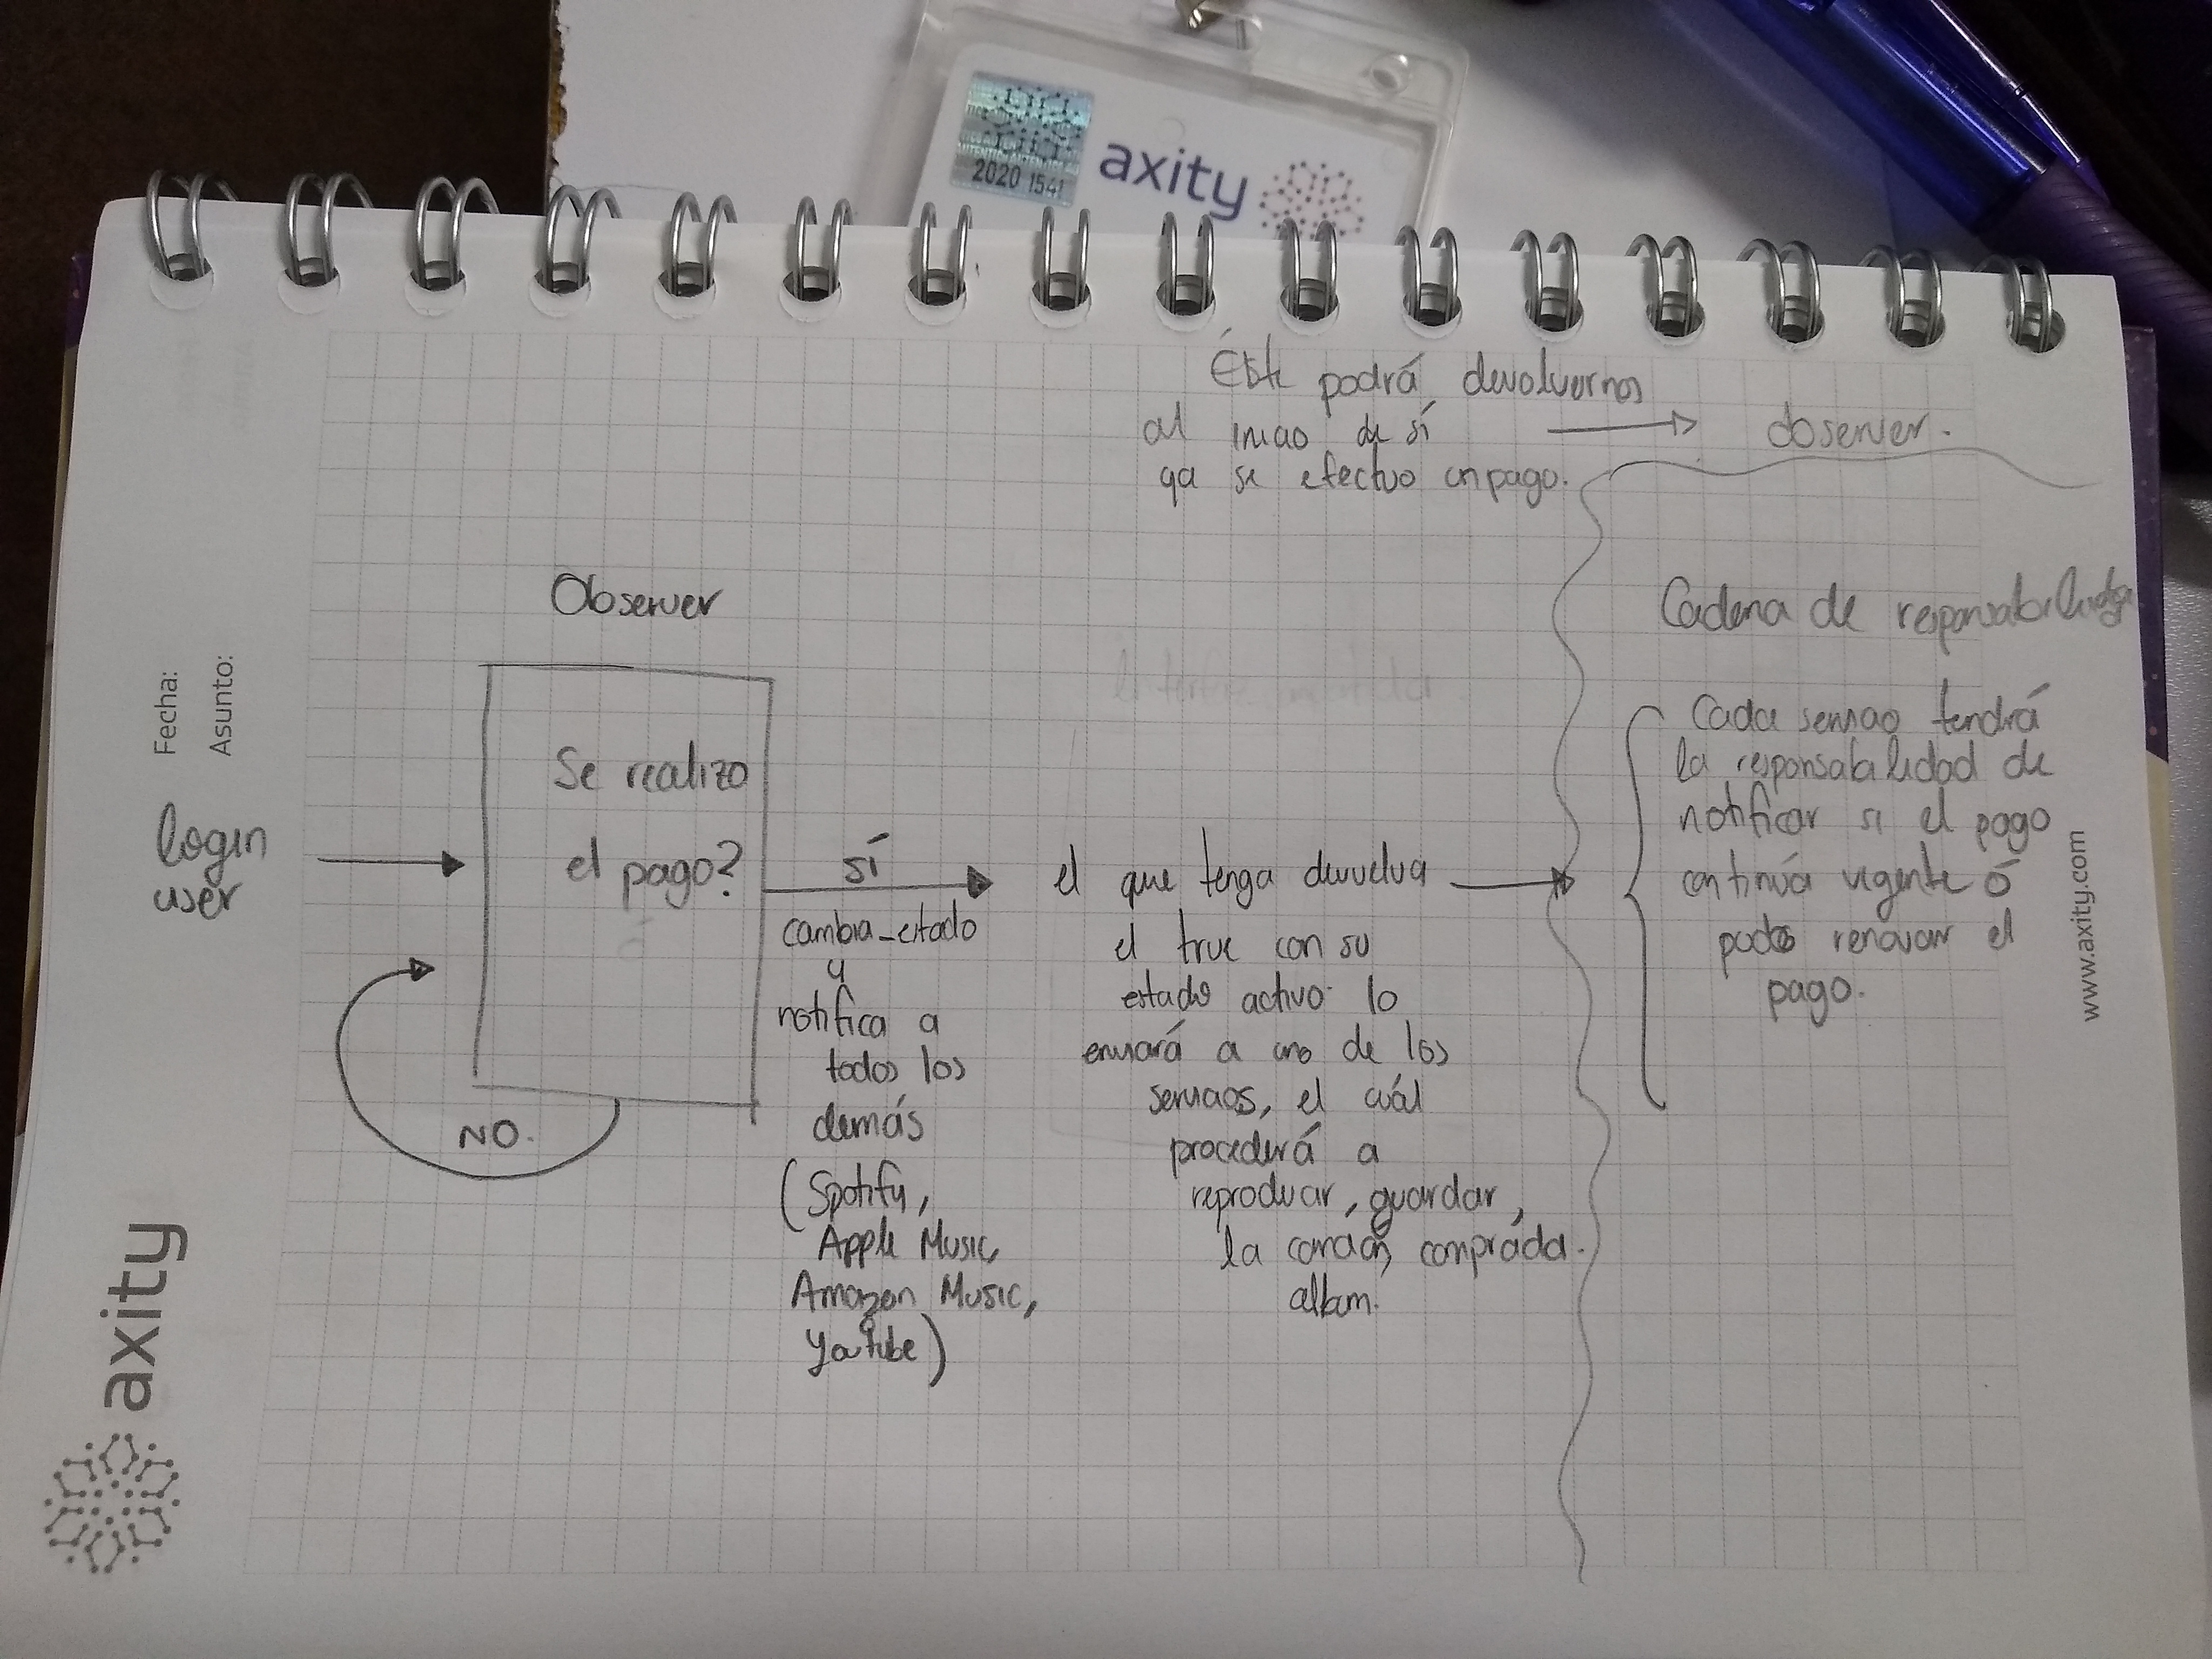 2020 1541
axity
Éste podrá devolvernos
al inicio de sí → observer.
ya se efectuo un pago.
Observer
Cadena de responsabilidad
Fecha:
Asunto:
login
user
Se realizo
el pago?
NO.
sí
cambia_estado
y
notifica a
todos los
demás
(Spotify,
Apple Music,
Amazon Music,
Youtube)
el que tenga devuelva
el true con su
estado activo lo
enviará a uno de los
servicios, el cuál
procederá a
reproducir, guardar,
la canción, compráda.
album.
Cada servicio tendrá
la responsabilidad de
notificar si el pago
continúa vigente ó
renovar el
pago.
www.axity.com
axity